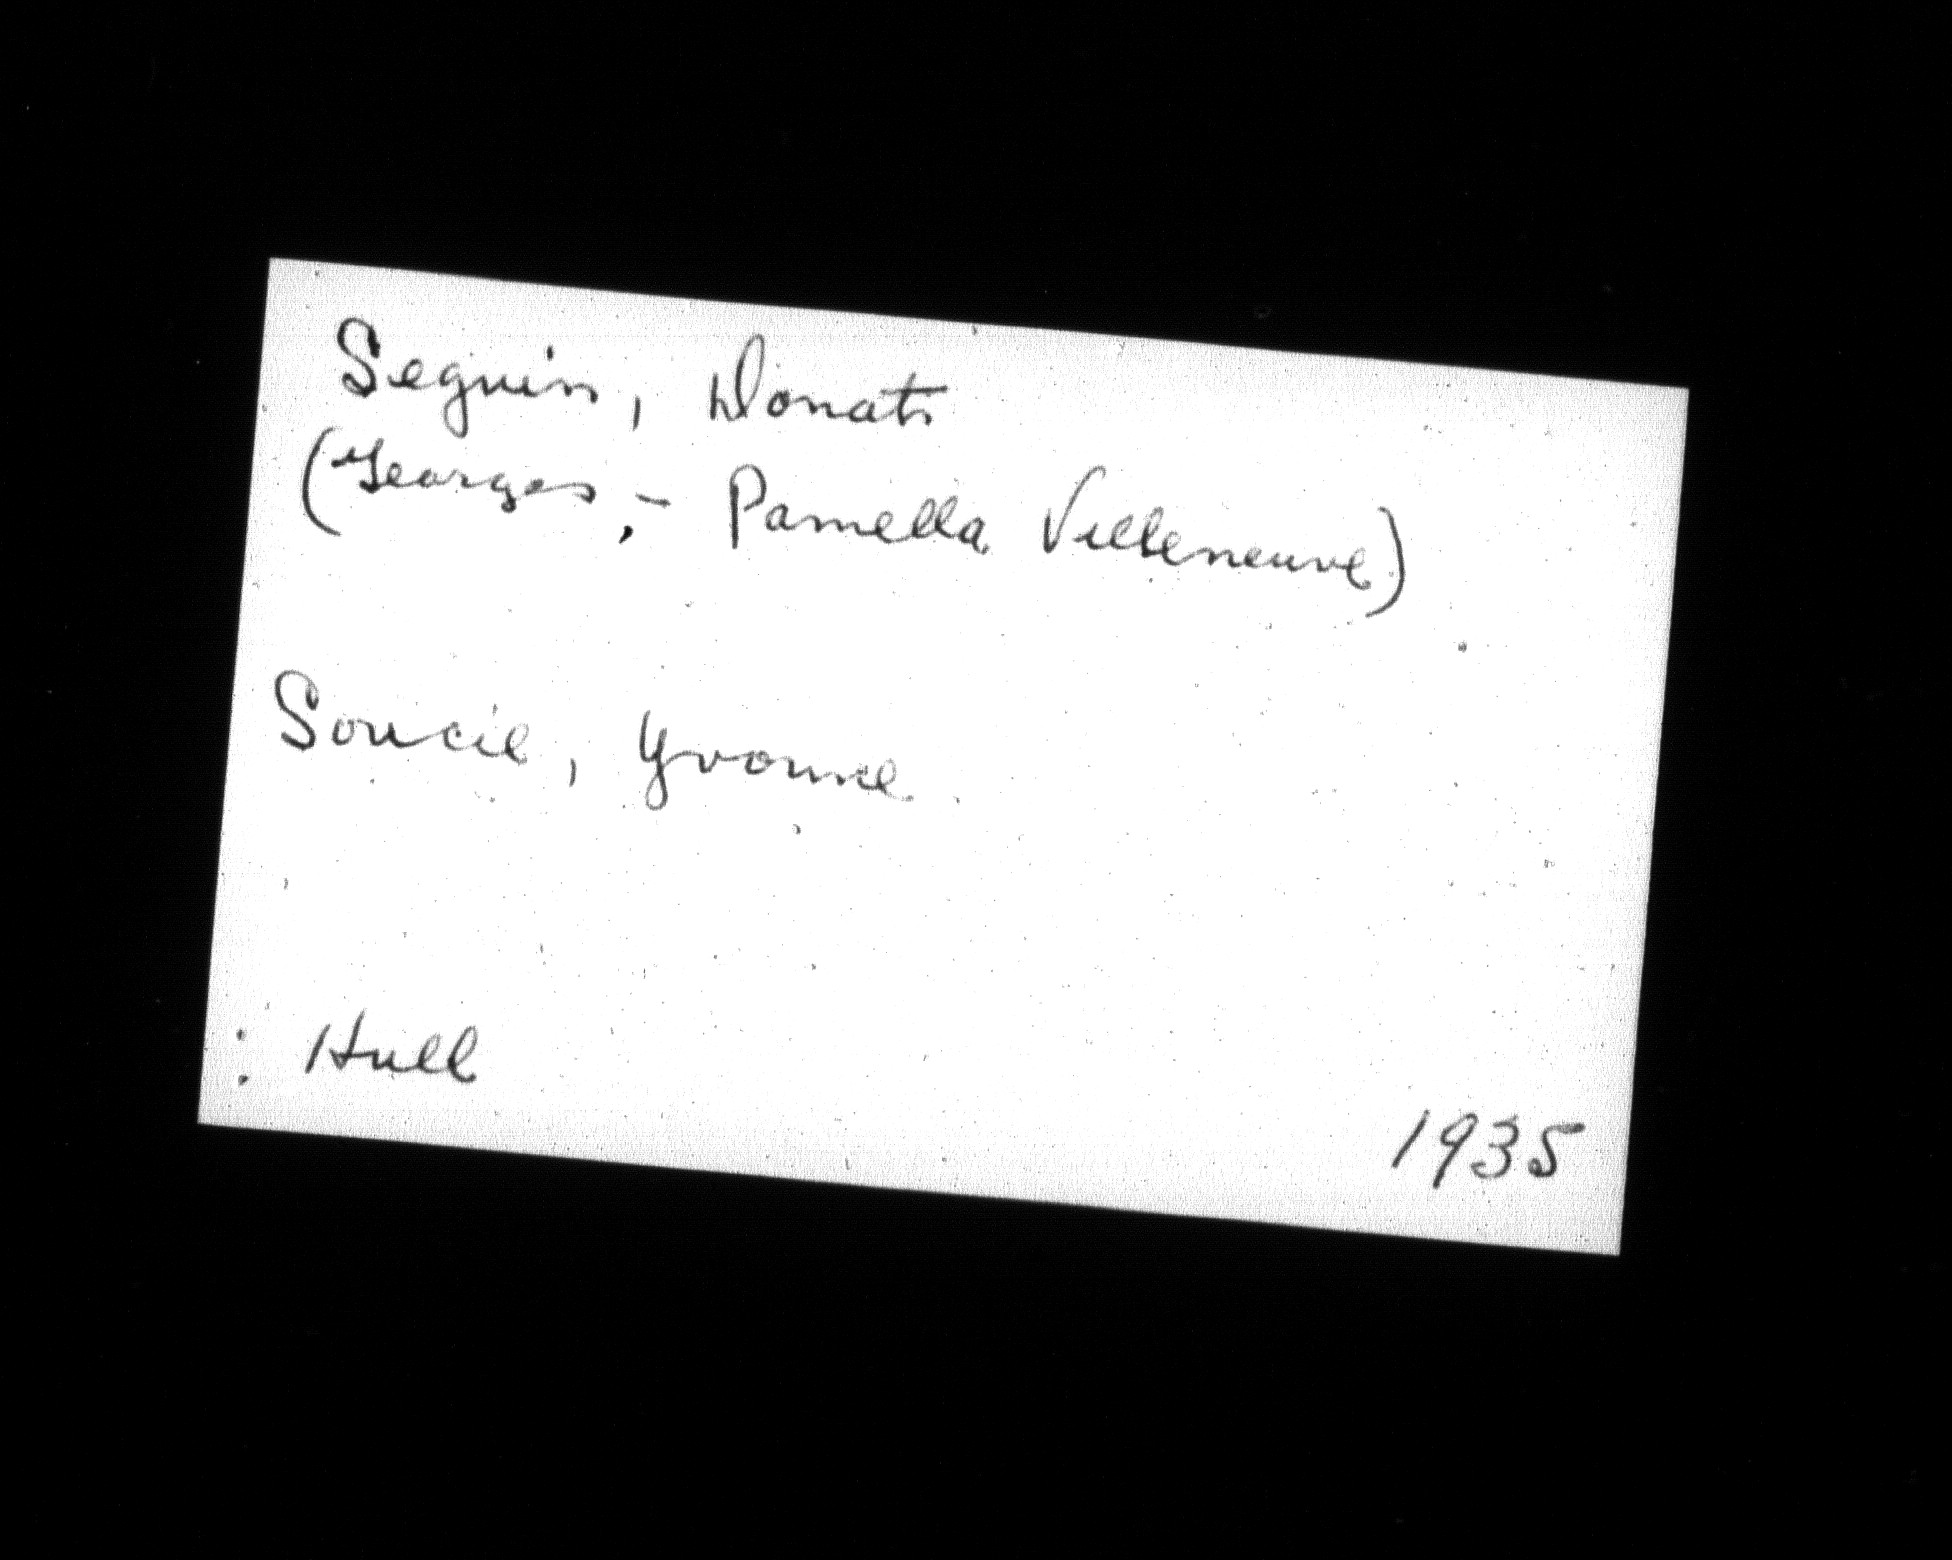 Seguin, Donat
(Georges, - Pamella Villeneuve)
Soucie, Yvonne.
: Hull
1935